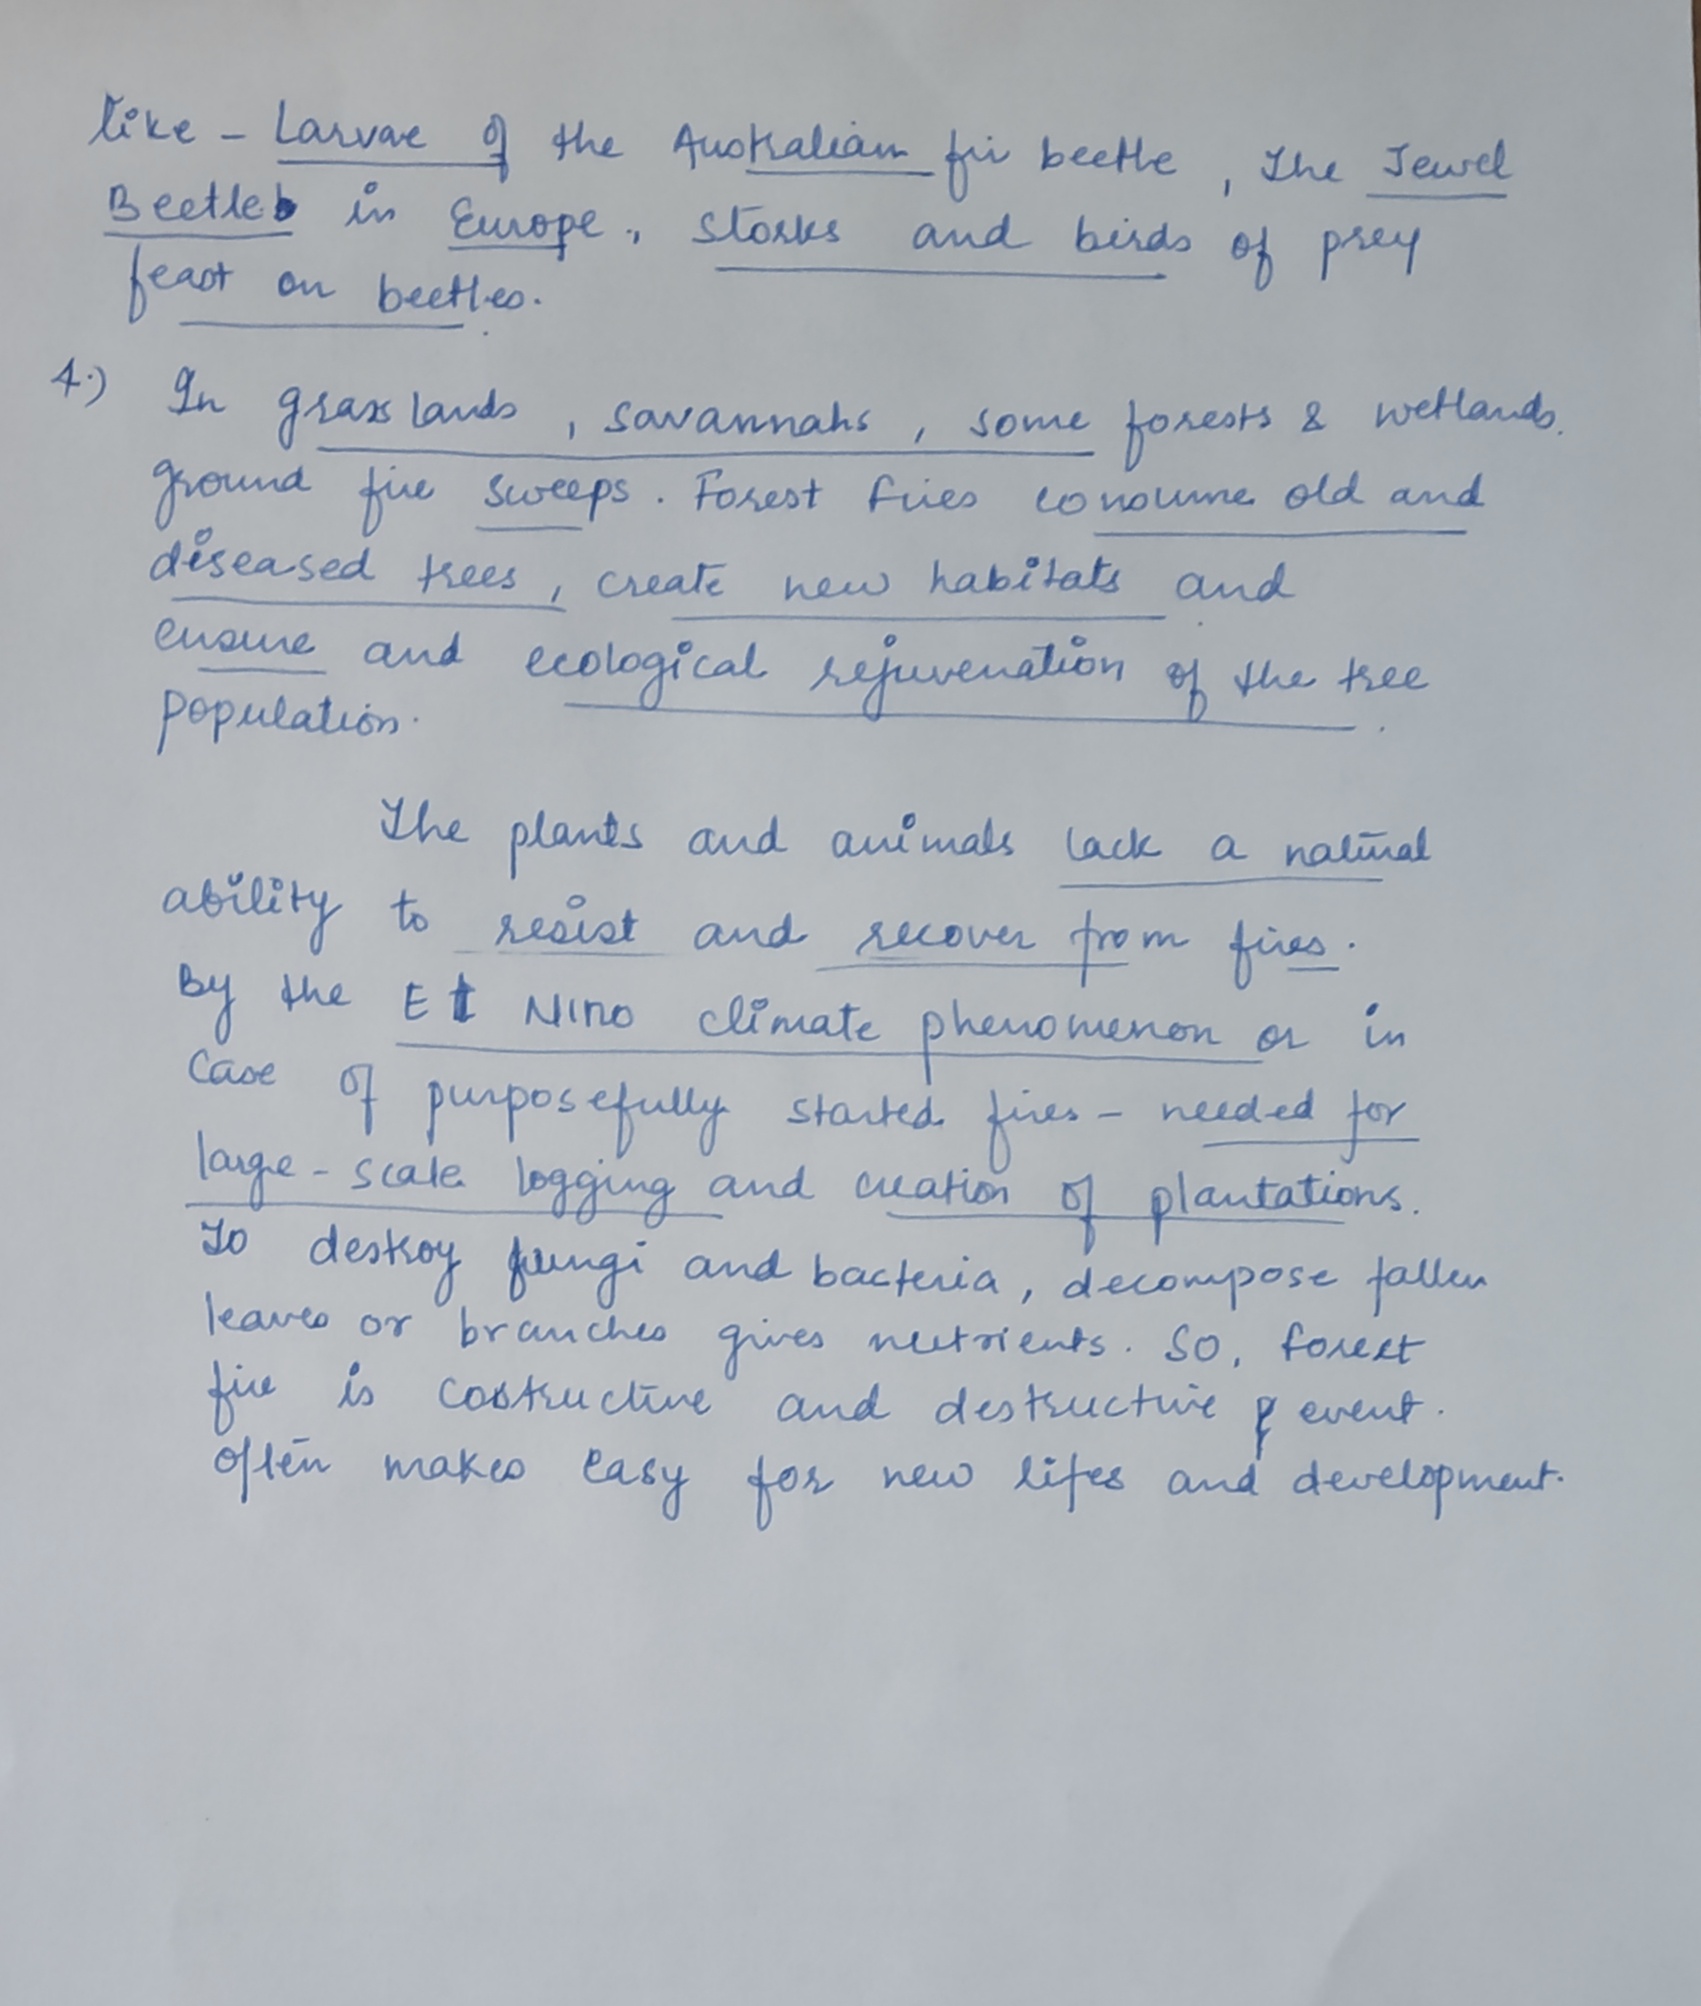 like - Larvae of the Australian fir beetle, The Jewel
Beetles in Europe, storks and birds of prey
feast on beetles.
4.) In grasslands, savannahs, some forests & wetlands.
ground fire sweeps. Forest fires consume old and
diseased trees, create new habitats and
ensure and ecological rejuvenation of the tree
population.
The plants and animals lack a natural
ability to resist and recover from fires.
By the El NINO climate phenomenon or in
case of purposefully started fires - needed for
large-scale logging and creation of plantations.
To destroy fungi and bacteria, decompose fallen
leaves or branches gives nutrients. So, forest
fire is costructive and destructive event.
often makes easy for new lifes and development.